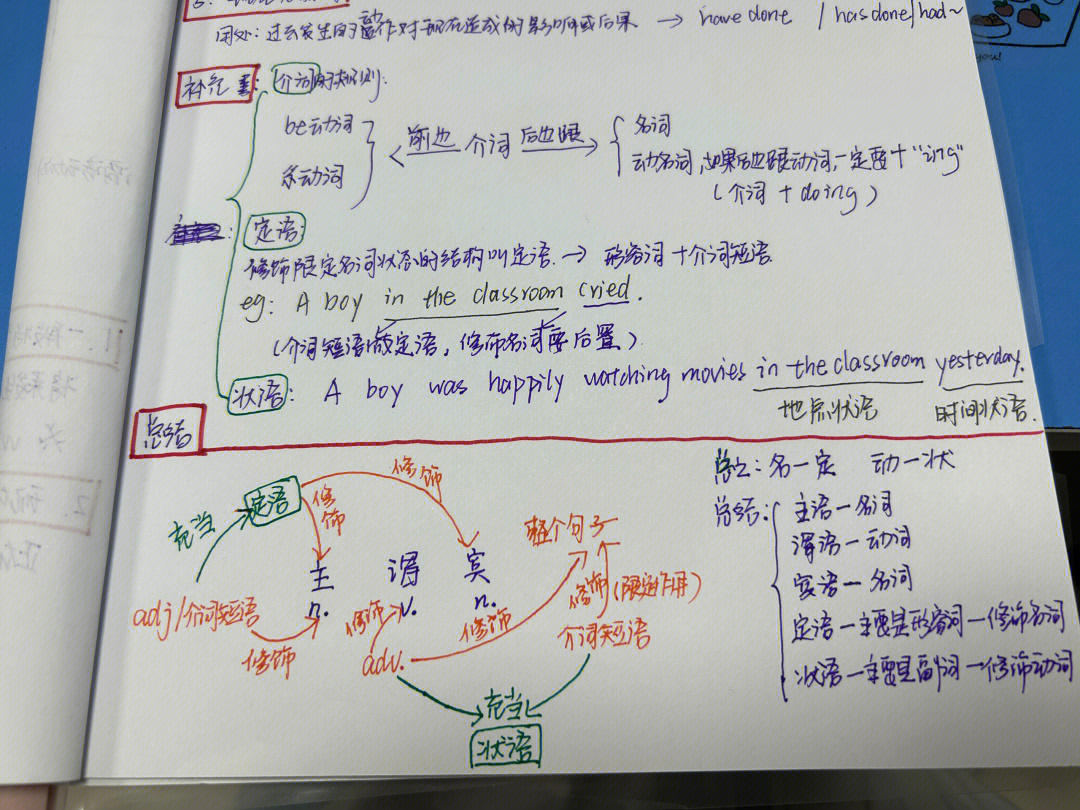 用处：过去发生的动作对现在造成的影响或后果 → have done / has done/had~
补充：
介词的大规则：
be动词
系动词
前边 介词 后边跟
名词
动名词，如果后边跟动词，一定要+"ing"
（介词 + doing）
定语：
修饰限定名词状态的结构叫定语. → 形容词+介词短语
eg: A boy in the classroom cried.
（介词短语做定语，修饰名词要后置）
状语： A boy was happily watching movies in the classroom yesterday.
地点状语 时间状语.
总结
修饰
充当 定语 修饰
整个句子
主 谓 宾
n. v. n.
修饰（限定作用）
adj/介词短语 修饰 修饰 介词短语
修饰
adv.
充当
状语
总之：名一定 动一状
总结：
主语一名词
谓语一动词
宾语一名词
定语一主要是形容词一修饰名词
状语一主要是副词一修饰动词
you!